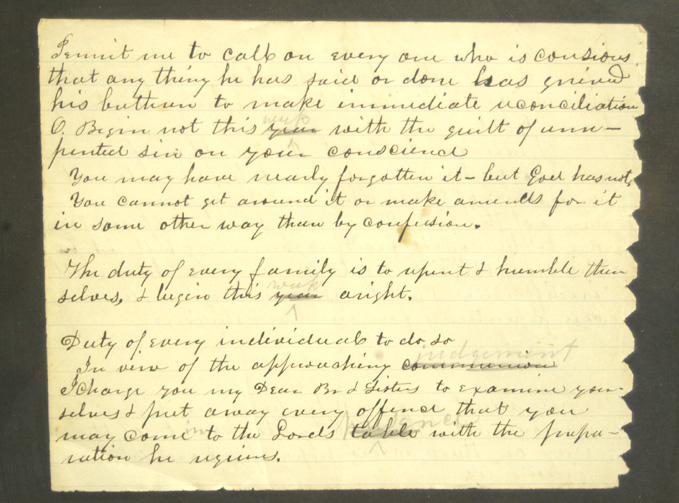 Permit me to call on every one who is consious
that any thing he has said or done has grieved
his bethren to make immediate reconciliation
week
O. Begin not this year with the guilt of unre-
pented sin on your conscience
You may have nearly forgotten it - but God has not,
You cannot get around it or make amends for it
in some other way than by confession.
The duty of every family is to repent & humble them
week
selves, & begin this year aright.
Duty of every individual to do so
judgement
In view of the approaching communion
I charge you my Dear Br & Sisters to examine your-
selves & put away every offence that you
presence
may come to the Lords table with the prepa-
ration he requires.